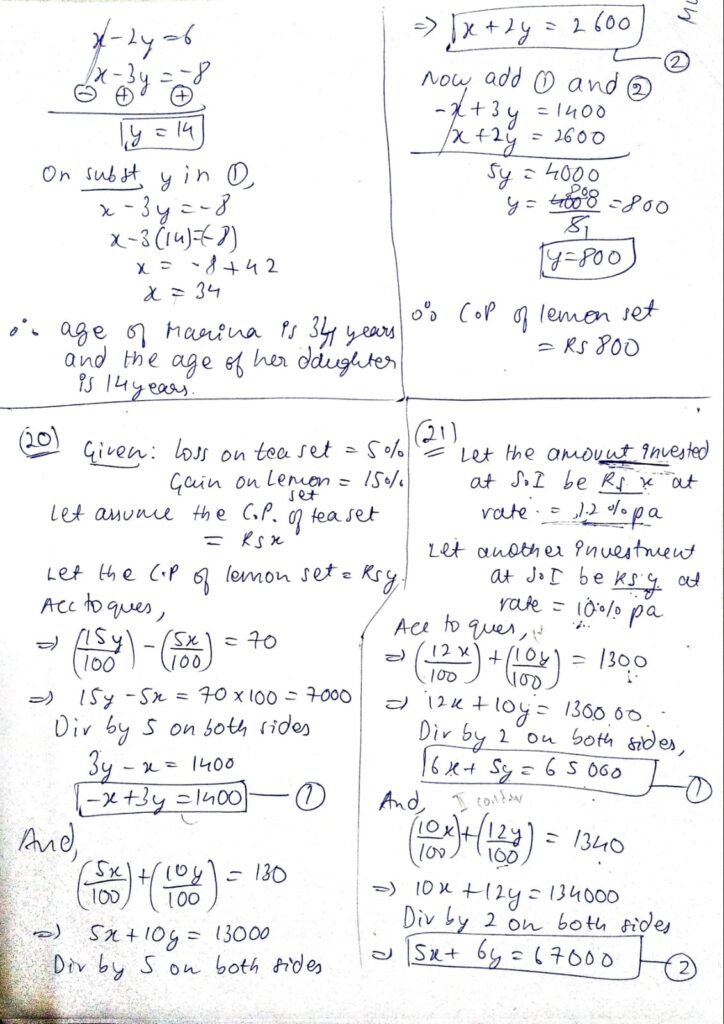 x - 2y = 6
x - 3y = -8
⊖ ⊕ ⊕
y = 14
On subst y in ①,
x - 3y = -8
x - 3(14) = (-8)
x = -8 + 42
x = 34
∴ age of Marina is 34 years
and the age of her daughter
is 14 years.
⇒ x + 2y = 2600
②
Now add ① and ②
-x + 3y = 1400
x + 2y = 2600
5y = 4000
y = 4000/5 = 800
y = 800
∴ C.P of lemon set
= Rs 800
(20) Given: loss on tea set = 5%
Gain on Lemon set = 15%
Let assume the C.P. of tea set
= Rs x
Let the C.P of lemon set = Rs y.
Acc to ques,
⇒ (15y/100) - (5x/100) = 70
⇒ 15y - 5x = 70 x 100 = 7000
Div by 5 on both sides
3y - x = 1400
-x + 3y = 1400 — ①
And,
(5x/100) + (10y/100) = 130
⇒ 5x + 10y = 13000
Div by 5 on both sides
(21) Let the amount invested
at S.I be Rs x at
rate = 12% pa
Let another investment
at S.I be Rs y at
rate = 10% pa
Acc to ques,
⇒ (12x/100) + (10y/100) = 1300
⇒ 12x + 10y = 130000
Div by 2 on both sides,
6x + 5y = 65000 — ①
And,
(10x/100) + (12y/100) = 1340
⇒ 10x + 12y = 134000
Div by 2 on both sides
⇒ 5x + 6y = 67000 — ②